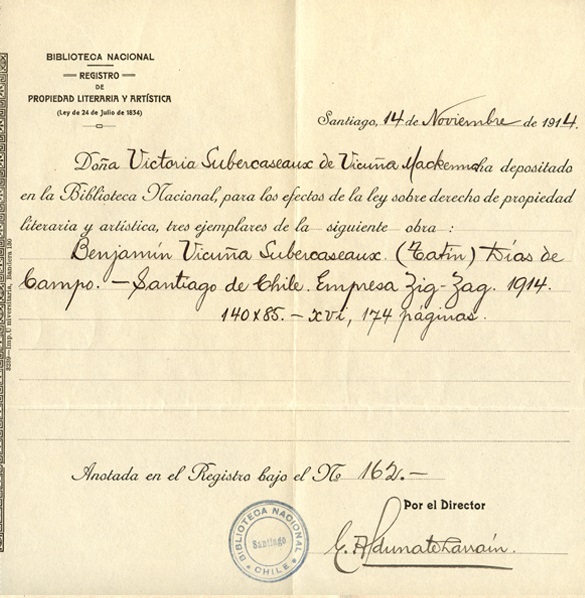 BIBLIOTECA NACIONAL
REGISTRO
DE
PROPIEDAD LITERARIA Y ARTÍSTICA
(Ley de 24 de Julio de 1834)
Santiago, 14 de Noviembre de 1914.
Doña Victoria Subercaseaux de Vicuña Mackenna ha depositado
en la Biblioteca Nacional, para los efectos de la ley sobre derecho de propiedad
literaria y artística, tres ejemplares de la siguiente obra :
Benjamín Vicuña Subercaseaux. (Tatín) Días de
Campo. — Santiago de Chile. Empresa Zig-Zag. 1914.
140 x 85. — xvi, 174 páginas.
Anotada en el Registro bajo el Nº 162. —
Por el Director
BIBLIOTECA NACIONAL
Santiago
CHILE
Aldunate Larraín.